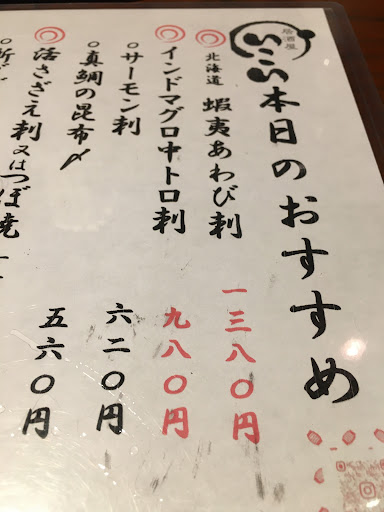 居酒屋
いこい
本日のおすすめ
◎北海道 蝦夷あわび刺 一三八〇円
◎インドマグロ中トロ刺 九八〇円
○サーモン刺 六二〇円
○真鯛の昆布〆 五六〇円
◎活さざえ刺又はつぼ焼 一